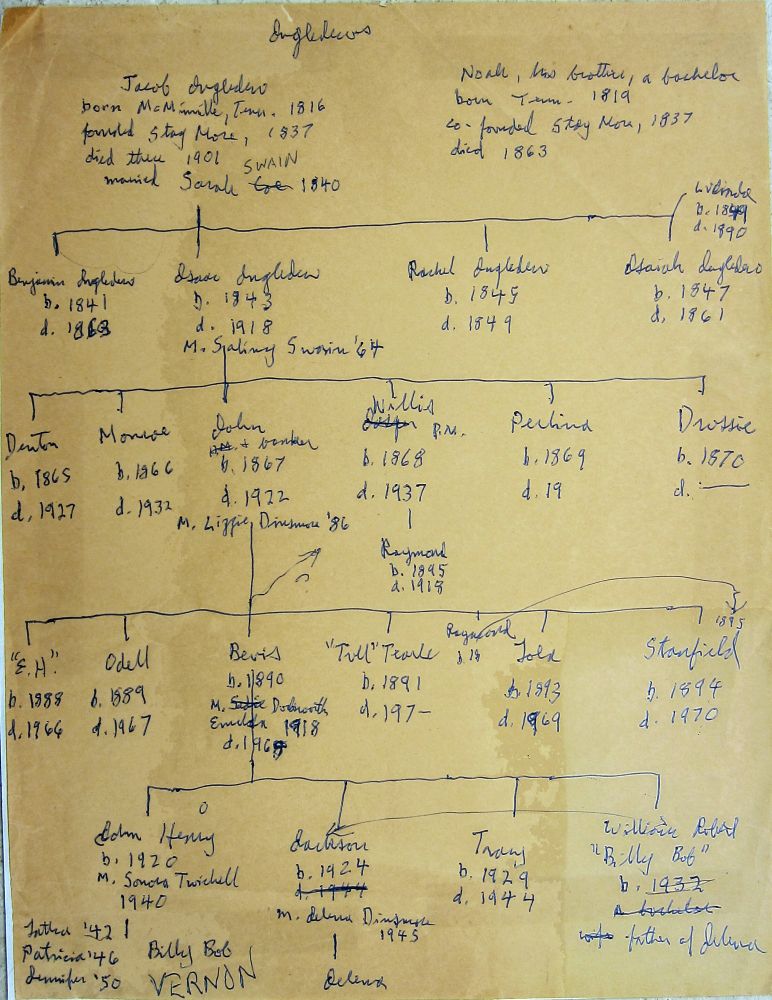 Ingledews
Jacob Ingledew
born McMinville, Tenn. 1816
founded Stay More, 1837
died there 1901
SWAIN
married Sarah Coe 1840
Noah, his brother, a bachelor
born Tenn. 1819
co-founded Stay More, 1837
died 1863
Lucinda
b. 1849
d. 1890
Benjamin Ingledew
b. 1841
d. 1863
Isaac Ingledew
b. 1843
d. 1918
M. Salina Swain '64
Rachel Ingledew
b. 1845
d. 1849
Isaiah Ingledew
b. 1847
d. 1861
Denton
b. 1865
d. 1927
Monroe
b. 1866
d. 1932
John
+ banker
b. 1867
d. 1922
M. Lizzie Dinsmore '86
Willis
P.M.
b. 1868
d. 1937
Raymond
b. 1895
d. 1918
Perlina
b. 1869
d. 19
Drussie
b. 1870
d. —
"E.H."
b. 1888
d. 1966
Odell
b. 1889
d. 1967
Bevis
b. 1890
M. Sadie Dobworth
Emelda 1918
d. 196
"Tull" Tearle
b. 1891
d. 197–
Raymond
b. 18
1895
Lola
b. 1893
d. 1969
Stanfield
b. 1894
d. 1970
John Henry
b. 1920
M. Sonora Twichell
1940
Jackson
b. 1924
d. 1944
M. Jelena Dinsmore
1945
Jelena
Tracy
b. 1929
d. 1944
William Robert
"Billy Bob"
b. 1932
a bachelor
father of Jelena
'42
Patricia '46
Jennifer '50
Billy Bob
VERNON